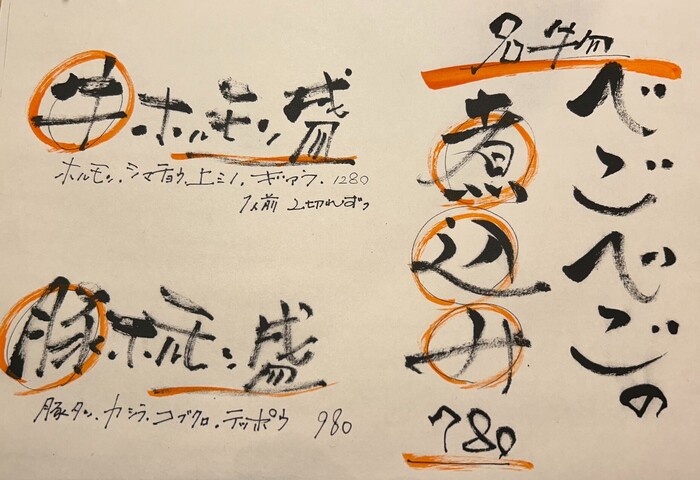 名物
べごべごの
煮込み
780
牛ホルモン盛
ホルモン.シマチョウ.上ミノ.ギアラ. 1280
1人前 2切れずつ
豚ホルモン盛
豚タン.カシラ.コブクロ.テッポウ 980